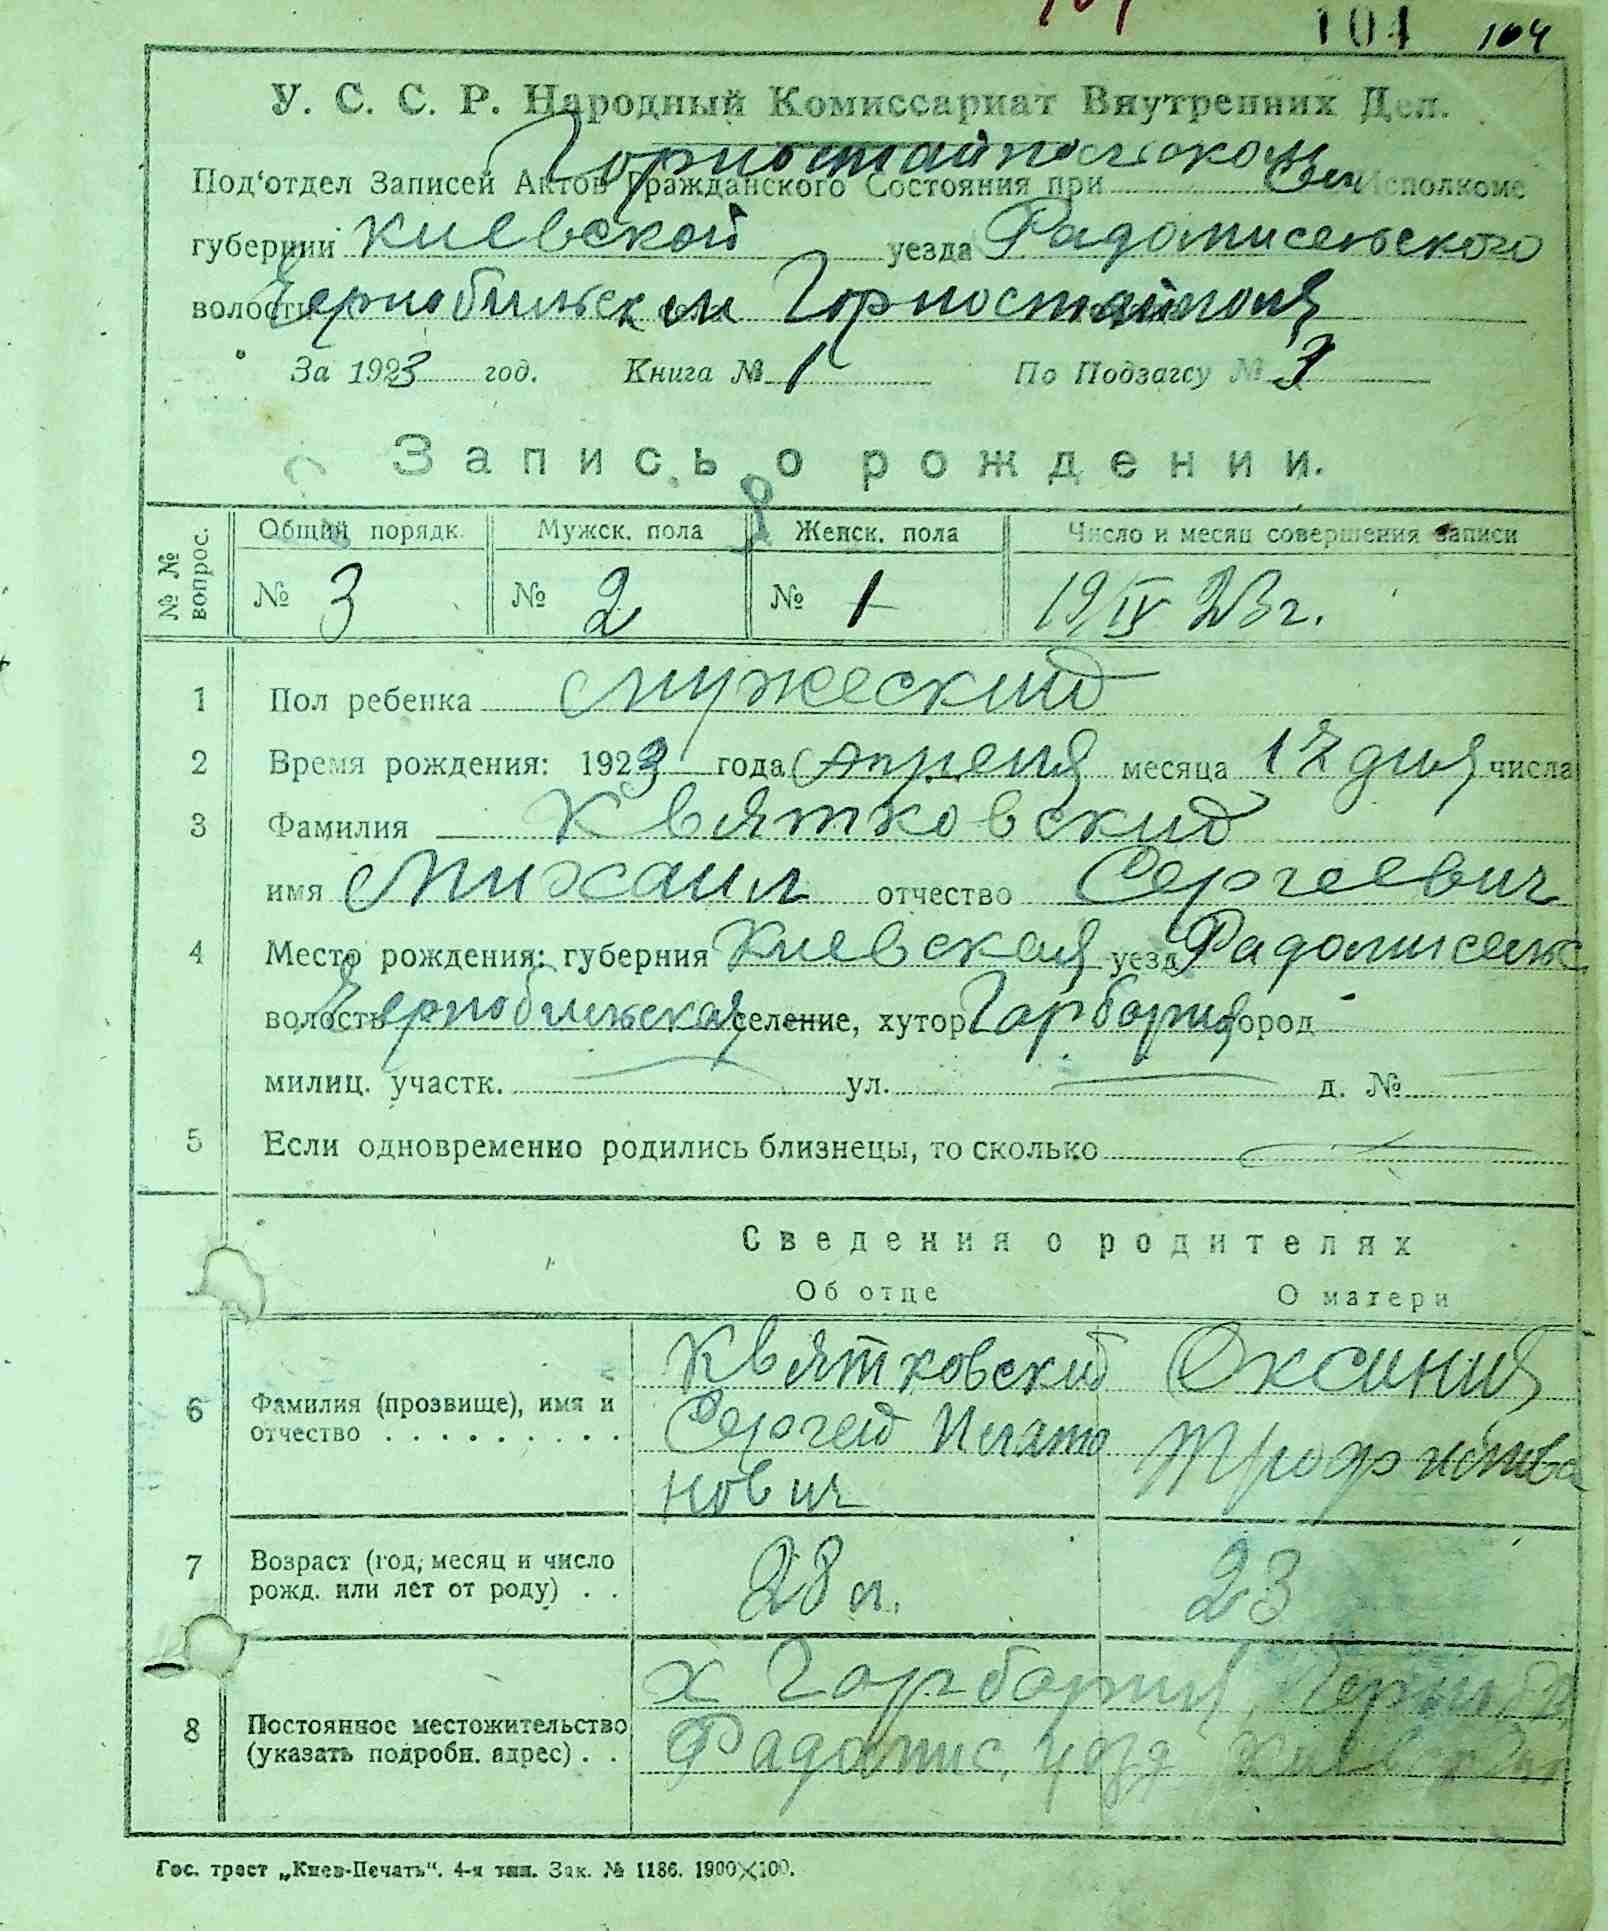 104 104
У. С. С. Р. Народный Комиссариат Внутренних Дел.
Горностайпольском
Под'отдел Записей Актов Гражданского Состояния при Сельисполкоме
губернии Киевской уезда Радомисельского
волости Чернобильск Горностайполя
За 1923 год. Книга № 1 По Подзагсу № 3
Запись о рождении.
№ № вопрос. Общий порядк. Мужск. пола Женск. пола Число и месяц совершения записи
№ 3 № 2 № 1 19/IV 23 г.
1 Пол ребенка Мужеский
2 Время рождения: 1923 года Апреля месяца 17 дня числа
3 Фамилия Квятковский
имя Михаил отчество Сергеевич
4 Место рождения: губерния Киевская уезд Радомисельс
волость Чернобильская селение, хутор Гарбария город
милиц. участк. ул. д. №
5 Если одновременно родились близнецы, то сколько
Сведения о родителях
Об отце О матери
6 Фамилия (прозвище), имя и отчество Квятковский Оксиния
Сергей
нович
7 Возраст (год, месяц и число рожд. или лет от роду) 28 л. 23
8 Постоянное местожительство (указать подробн. адрес) х Гарбария
Радомис. уезд
Гос. трест „Киев-Печать“. 4-я тип. Зак. № 1186. 1900×100.